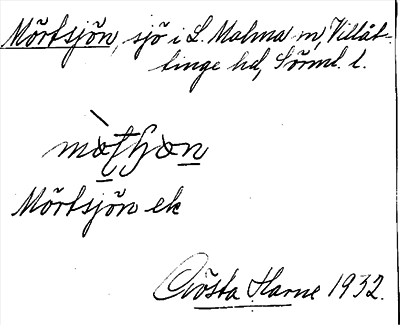 Mörtsjön, sjö i L. Malma sn, Villåt-
tinge hd, Sörml. l.
Mörtsjön ek
Gösta Harne 1932.